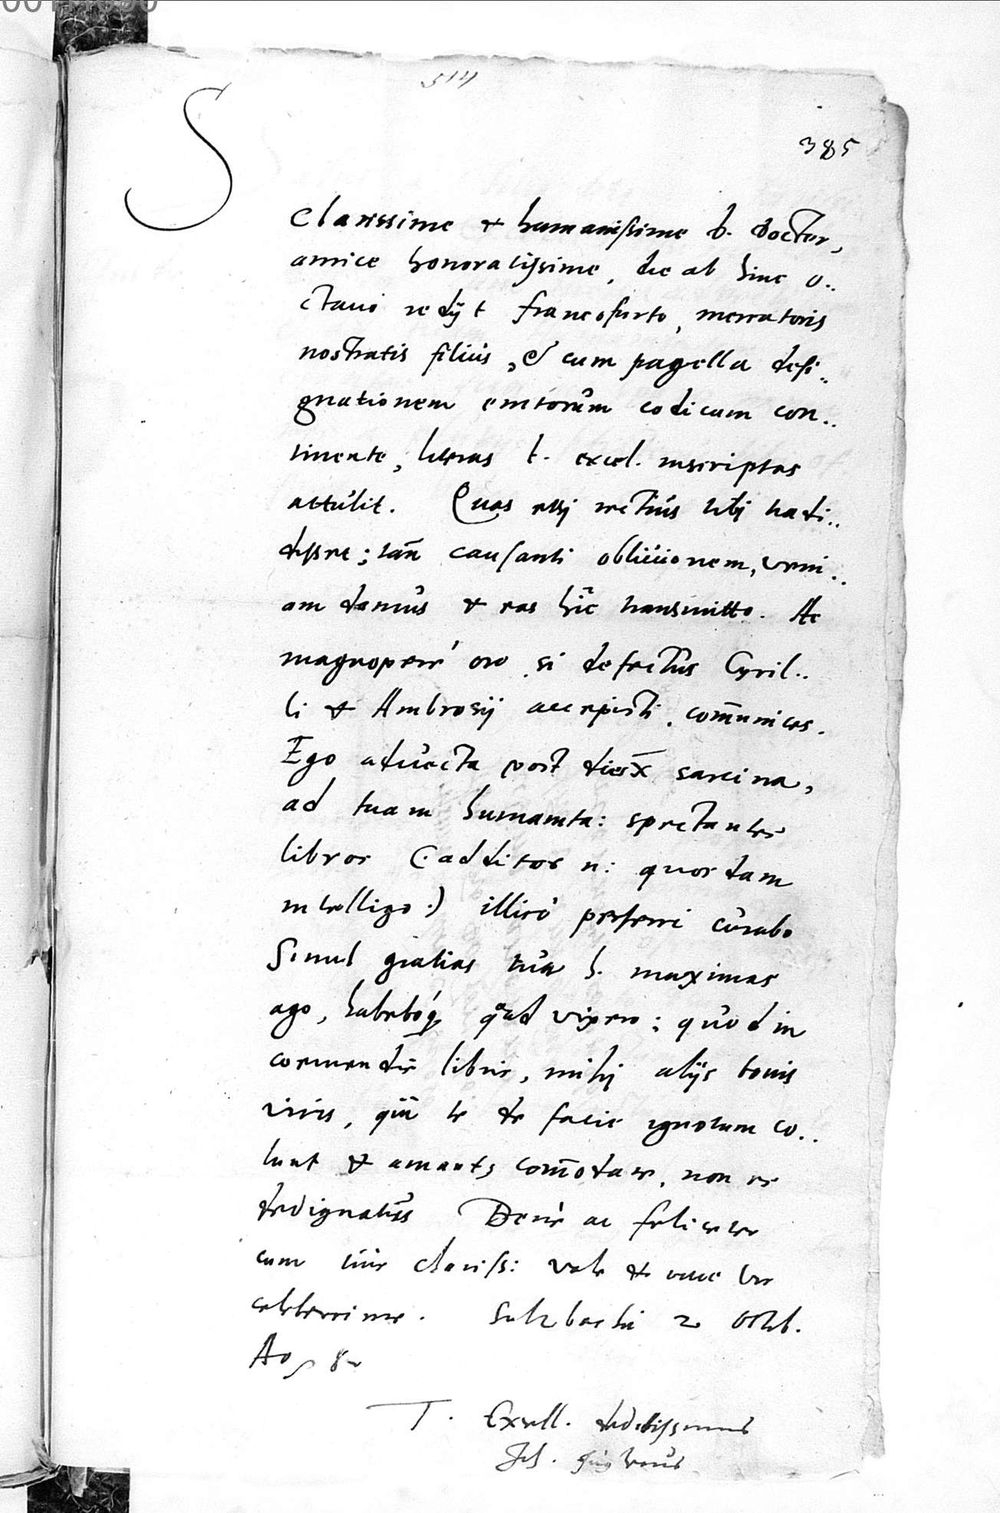 314
385
S
Clarissime & humanissime D. Doctor,
amice honoratissime, die ab hinc o..
ctauo redijt francofurto, mercatoris
nostratis filius, & cum pagella desi..
gnationem emtorum codicum con..
tinente, literas t. excel. inscriptas
attulit. Quas etsj rectius tibj tradi..
disset; tamē causanti obliuionem, veni..
am damus & eas hīc transmitto. Ac
magnoperè oro si defectus Cyril..
li & Ambrosij accepisti, com̄unices.
Ego aduecta post dies x sarcina,
ad tuam humanita: spectantes
libros (: additos n: quosdam
intelligo :) illicò perferri curabo
Simul gratias tuæ h. maximas
ago, habeboq́ quoad vixero; quod in
coemendis libris, mihj alijs bonis
viris, qui te de facie ignotum co..
lunt & amant, com̄odare, non es
dedignatus Benè ac feliciter
cum tuis clariss: vale & viue Vir
celeberrime. Sulzbachi 2 Octob.
Ao 82
T. Excell. deditissimus
Joh.